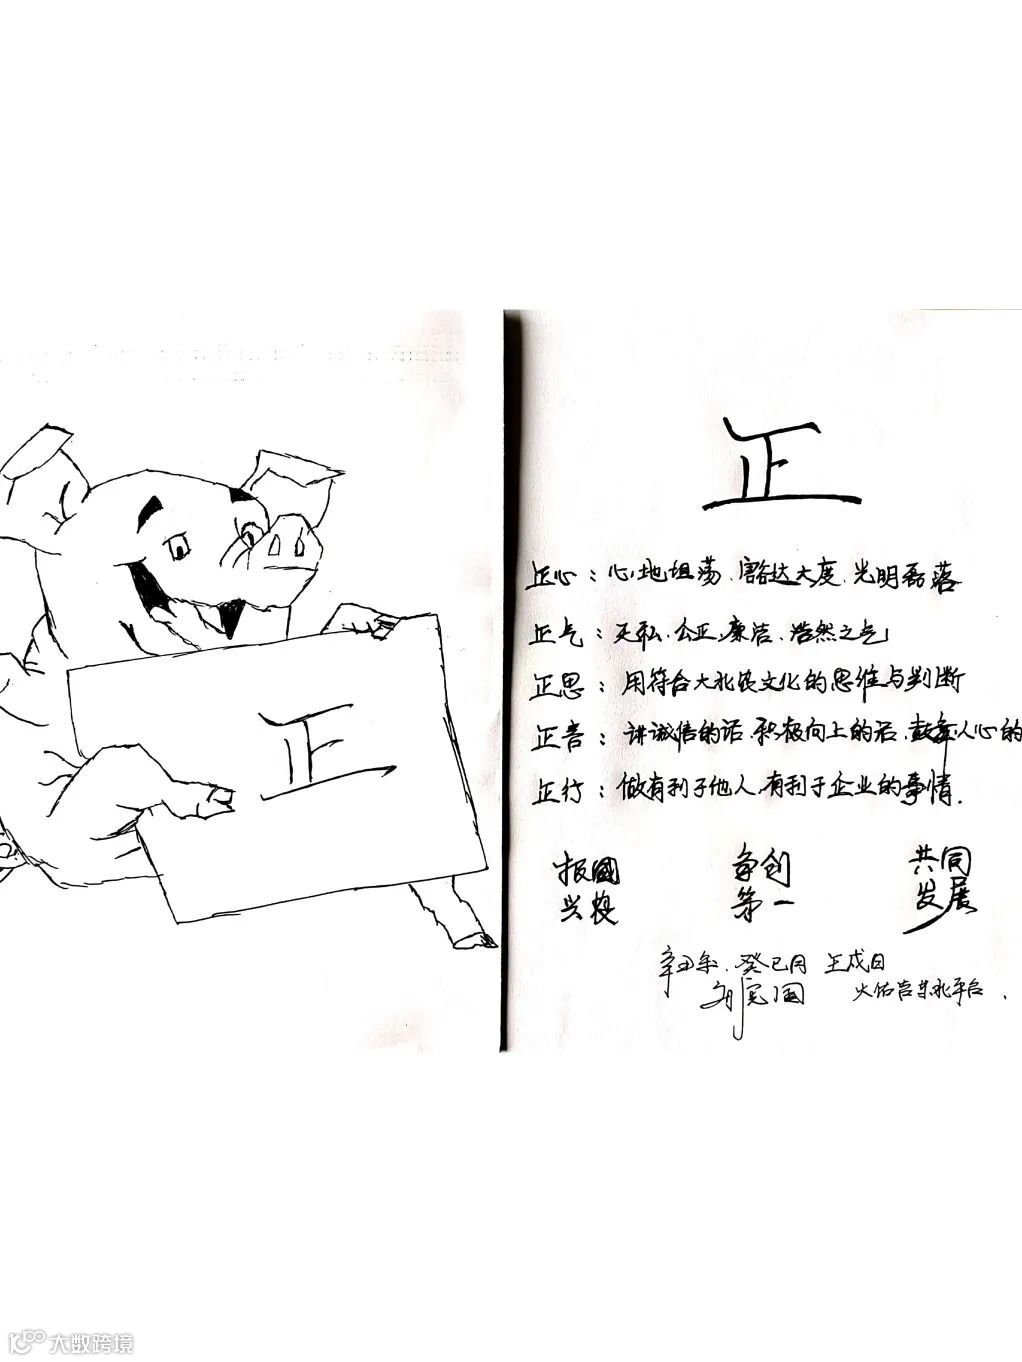 正
正
正心：心地坦荡、豁达大度、光明磊落
正气：无私、公正、廉洁、浩然之气
正思：用符合大北农文化的思维与判断
正言：讲诚信的话、积极向上的话、鼓舞人心的
正行：做有利于他人、有利于企业的事情.
报國 争创 共同
兴农 第一 发展
辛丑年.癸巳月 壬戌日
大数跨境